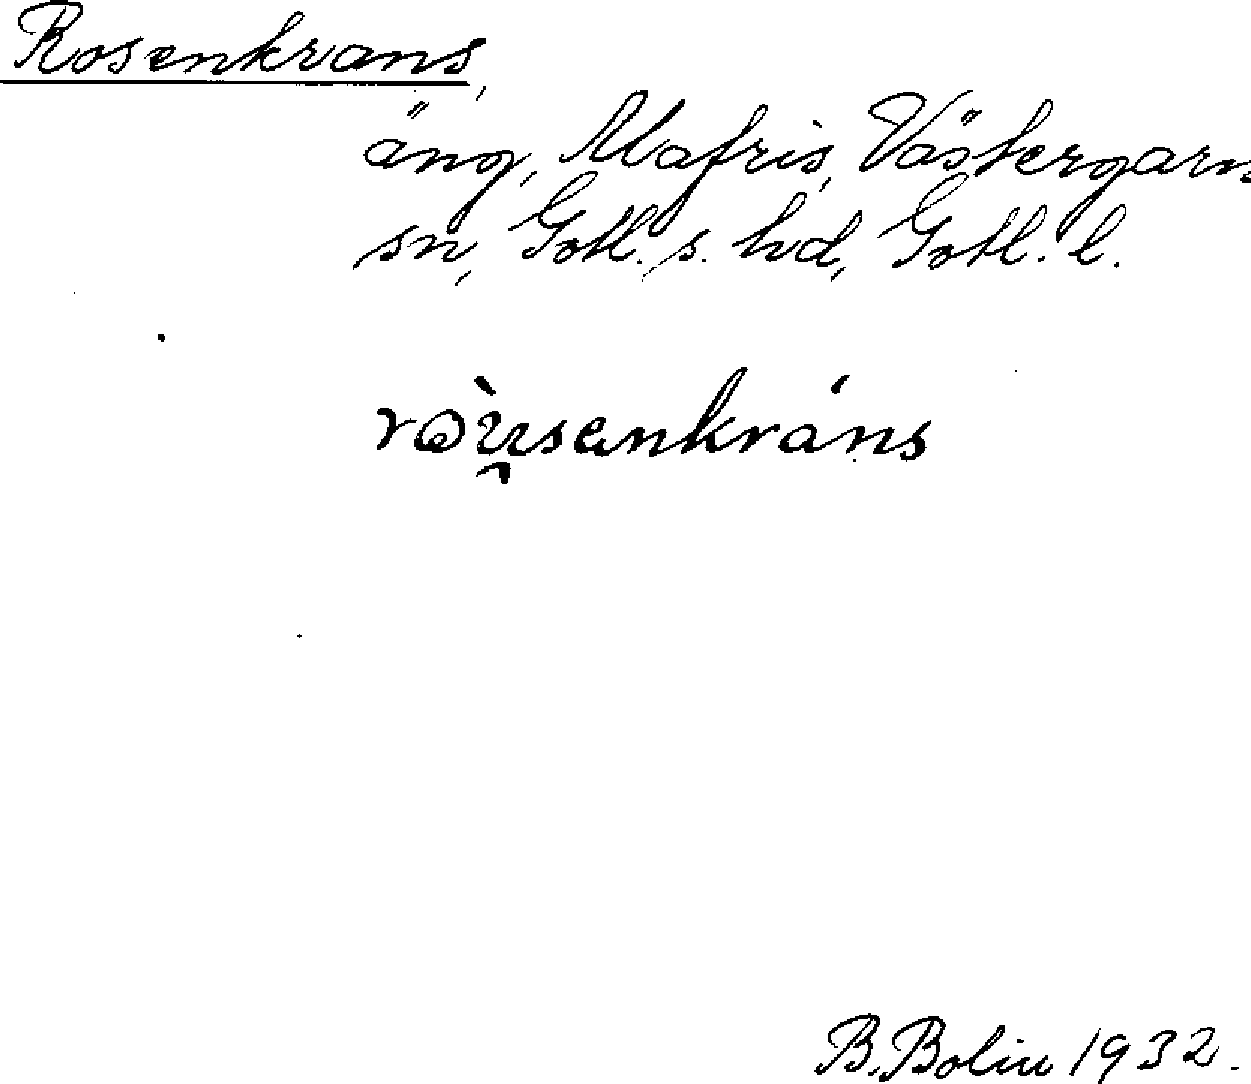 Rosenkrans,
äng, Mafris, Västergarns
sn, Gotl. s. hd, Gotl. l.
rɷ̀u̯sɐnkráns
B. Bolin 1932.